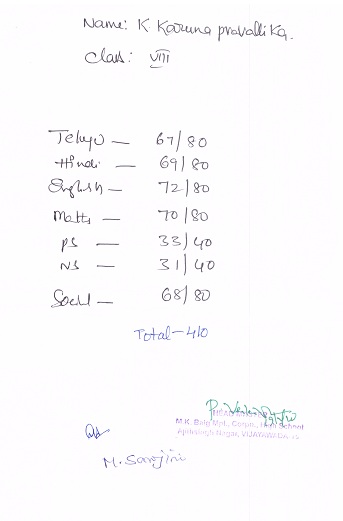 Name: K. Karuna pravallika.
Class: VIII
Telugu — 67/80
Hindi — 69/80
English — 72/80
Maths — 70/80
PS — 33/40
NS — 31/40
Social — 68/80
Total - 410
M.K. Baig Mpl., Corpn., High School
Ajitsingh Nagar, VIJAYAWADA
M. Sarojini